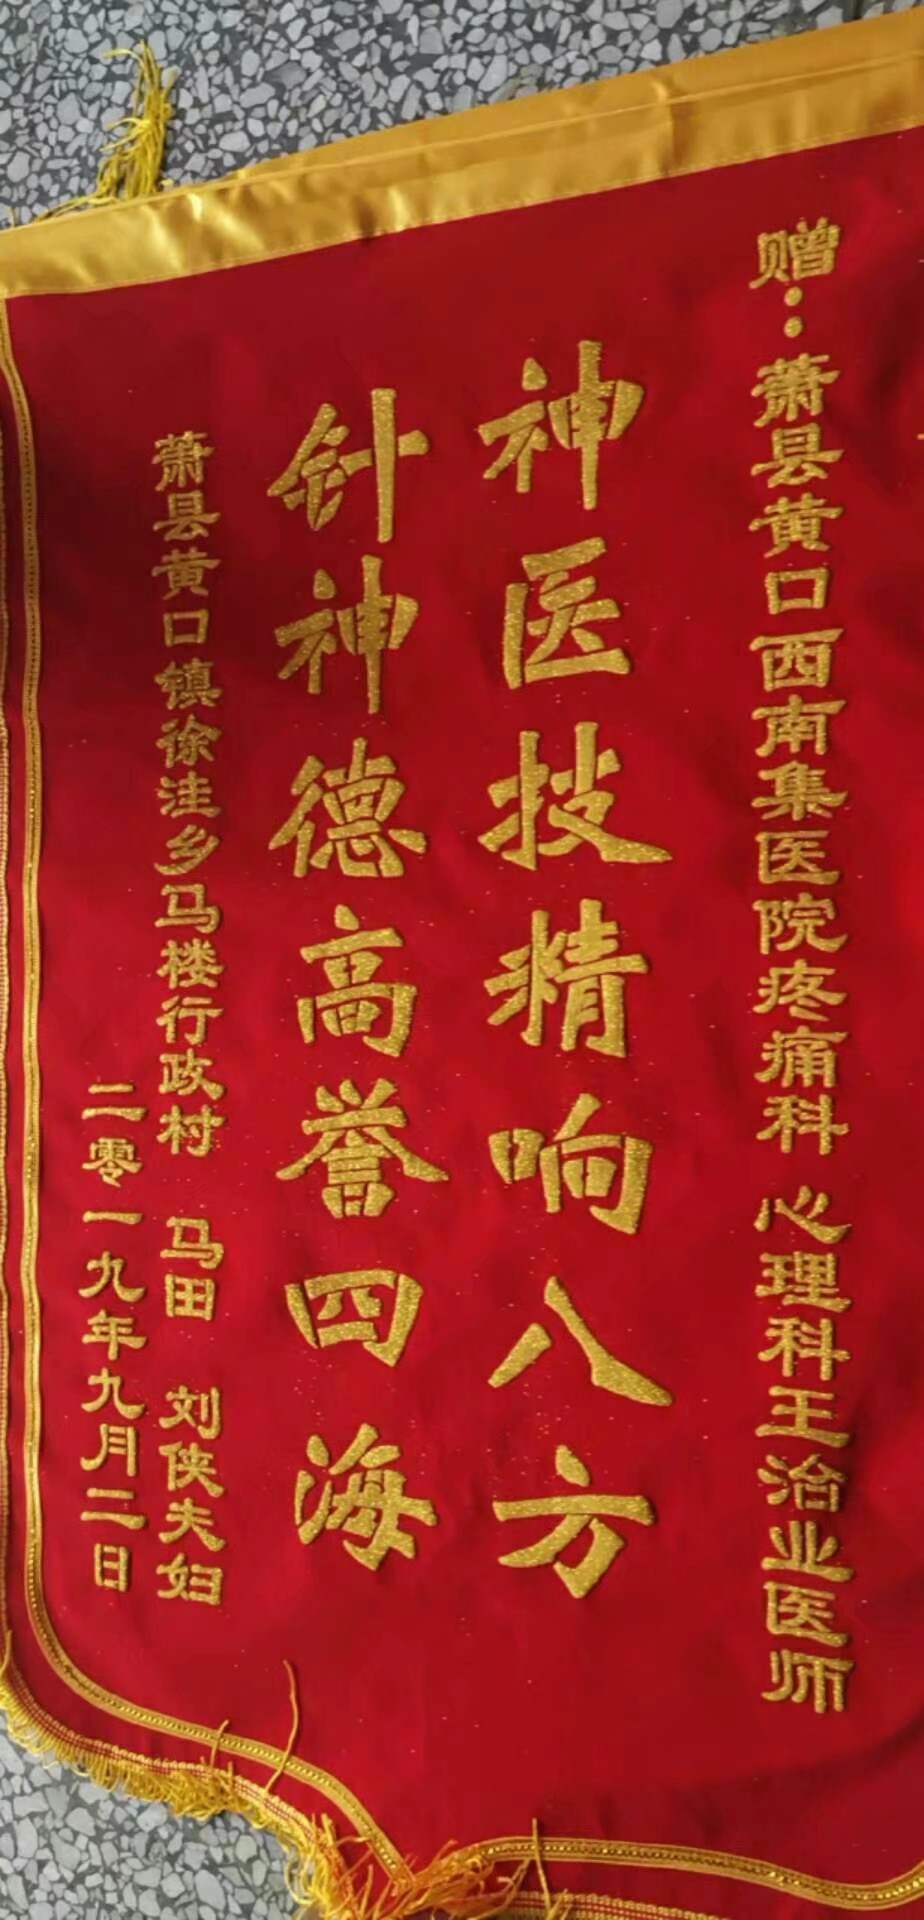 赠：萧县黄口西南集医院疼痛科 心理科王治业医师
神医技精响八方
针神德高誉四海
萧县黄口镇徐洼乡马楼行政村 马田 刘侠夫妇
二零一九年九月二日